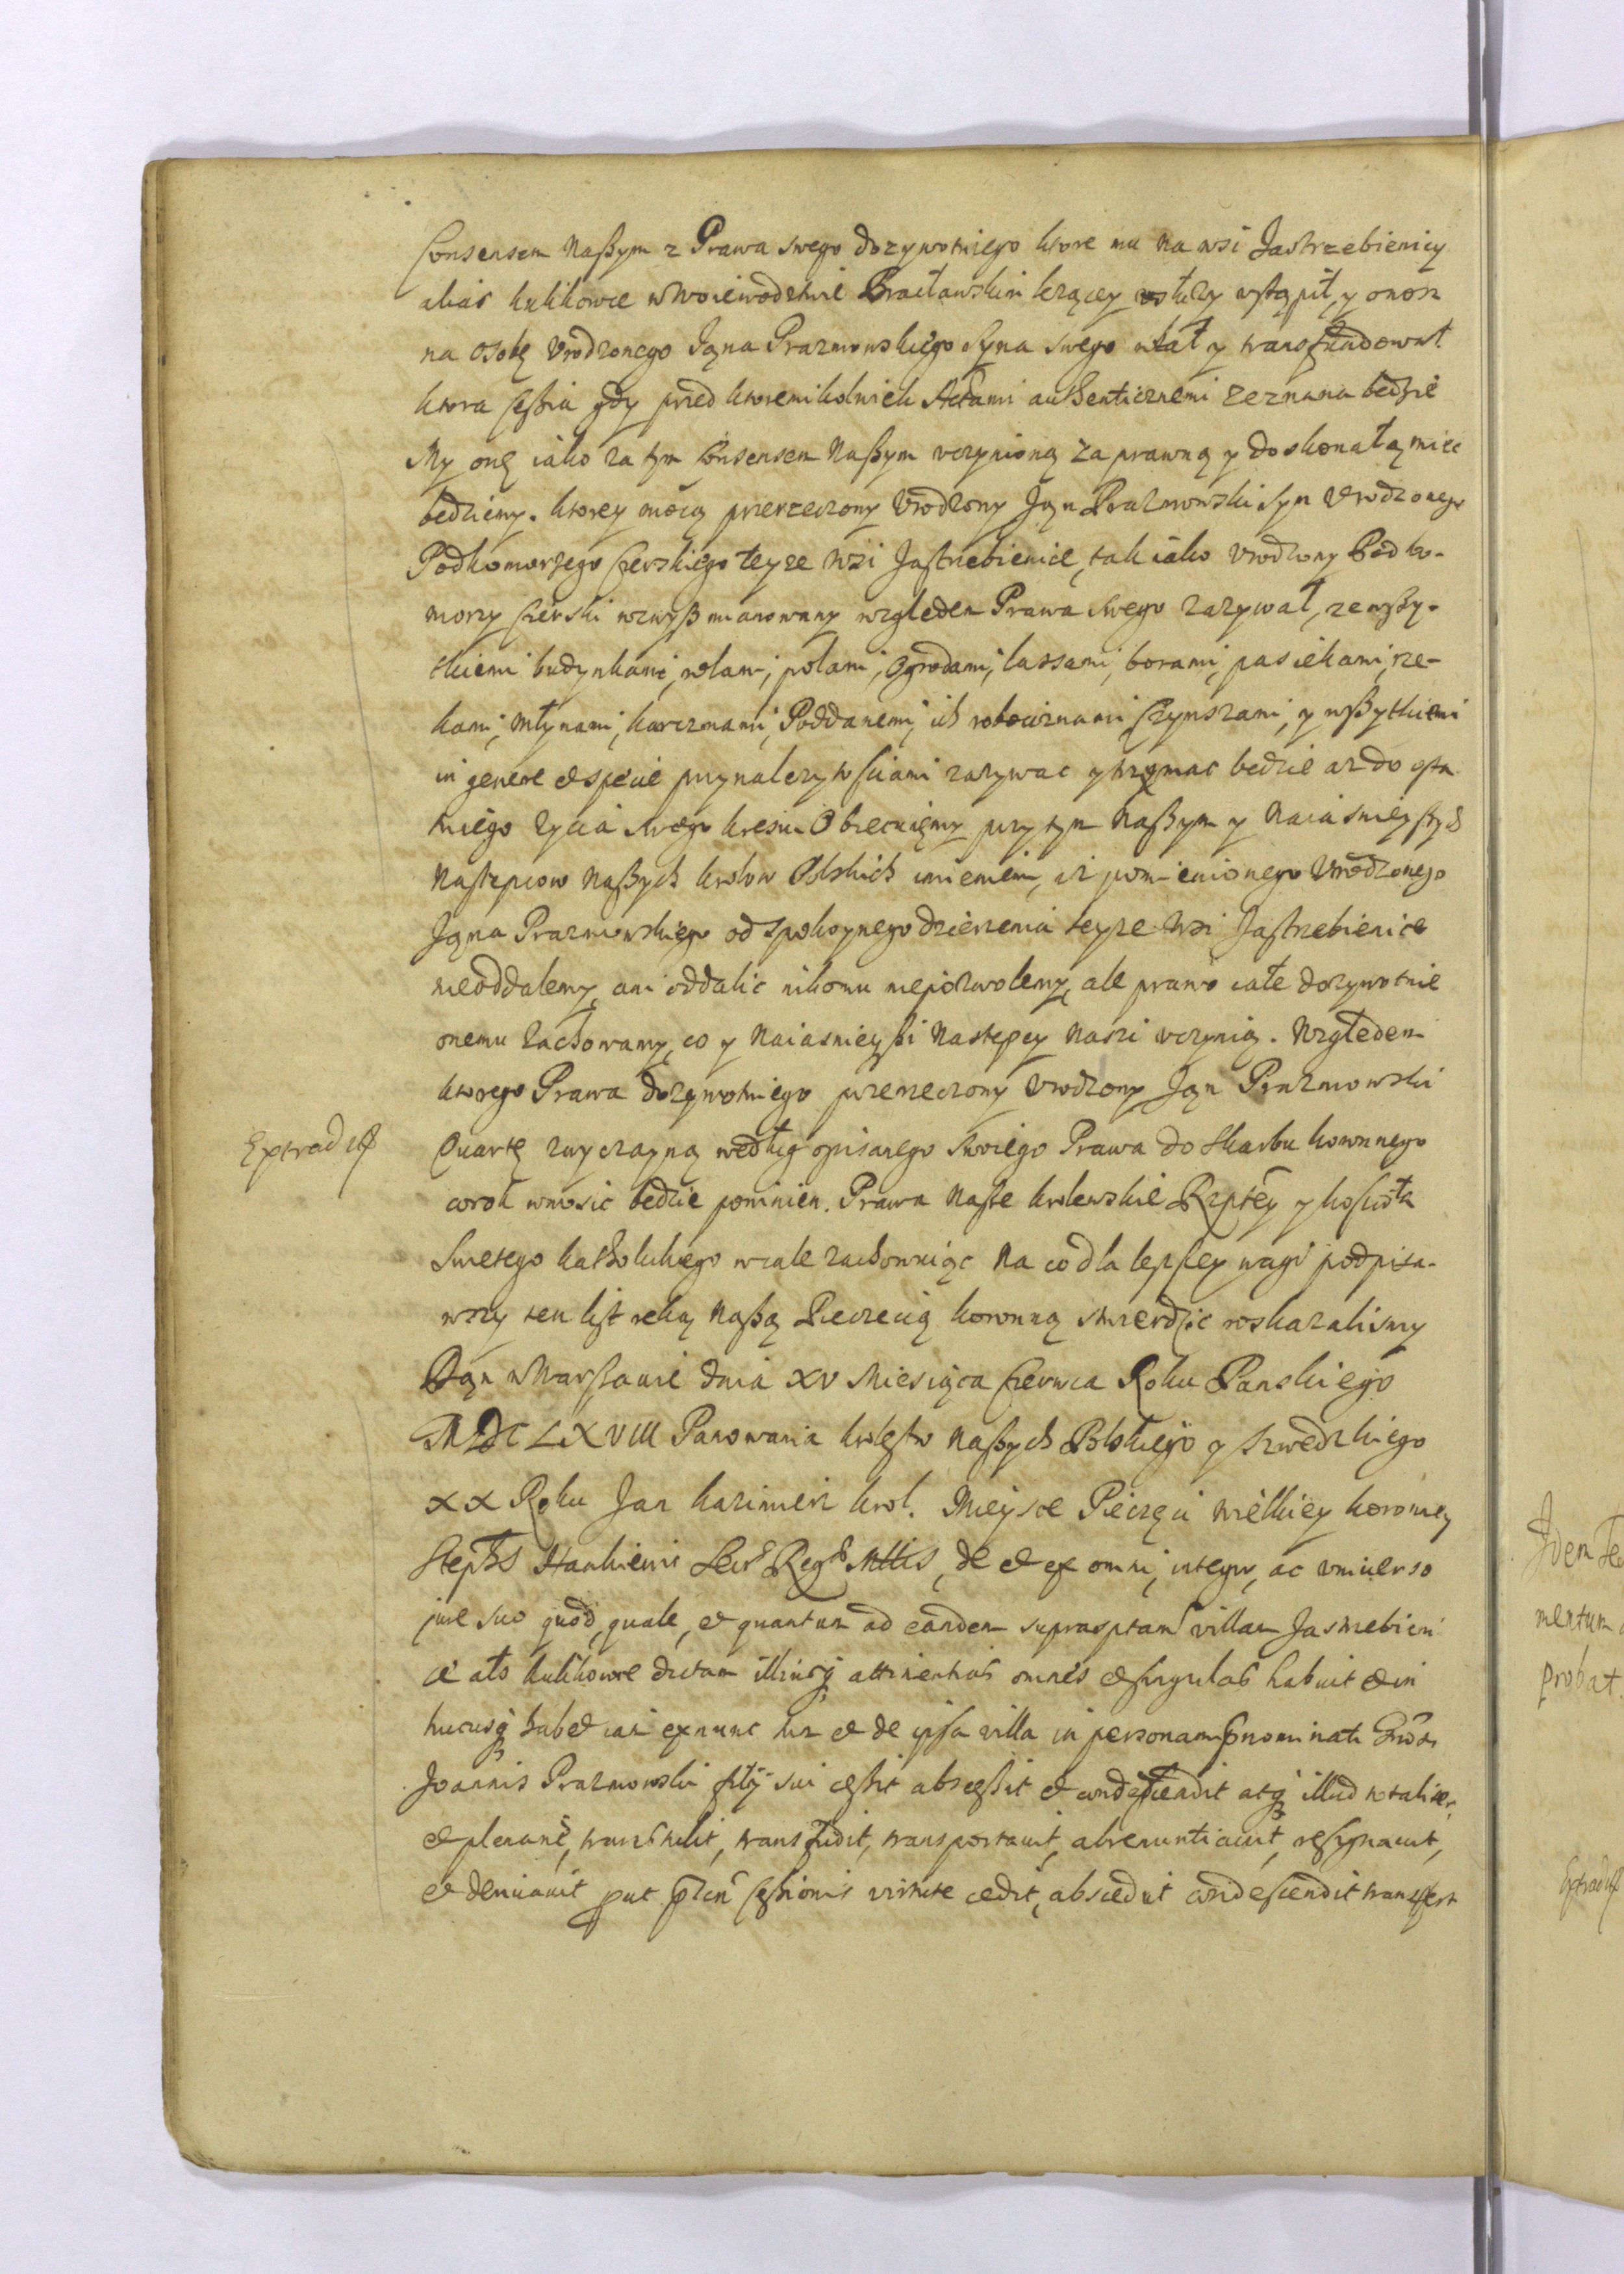 Consensem Naßym z Prawa swego dozywotniego ktore mu na wsi Jastrzebienicy
alias Kulikowce w Woiewodztwie Bracławskim lezącey słuzy vstąpił, y onosz
na osobę Vrodzonego Jąna Prazmowskiego Syna swego wlał y transfundował
ktora cessia gdy przed ktoremikolwiek Actami authenticznemi zeznana bedzie
My onę iako za tym Consensem Naßym vczynioną za prawną y doskonałą miec
bedziemy. ktorey mocą przerzeczony Vrodzony Jąn Prazmowski Syn Vrodzonego
Podkomorzego Czerskiego teyze wsi Jastrzebienice, tak iako Vrodzony Podko-
morzy Czerski wzwyß mianowany wzgledem Prawa swego zazywał, ze wßy-
tkiemi budynkami, rolami, polami, Ogrodami, lassami, borami, pasiekami, rze-
kami, Młynami, karczmami, Poddanemi, ich robociznami Czynszami, y wßytkiemi
in genere et specie przynalezytosciami zazywac y trzymac bedzie az do osta
tniego zycia swego kresu Obiecuięmy przy tym Naßym y Naiasnieyßych
Nastepcow Naßych krolow Polskich imieniem, iz pomienionego Vrodzonego
Jąna Prazmowskiego od spokoynego dzierzenia teyze wsi Jastrzebienice
nieoddalemy, ani oddalic nikomu niepozwolemy, ale prawo całe dozywotnie
onemu zachowamy, co y Naiasnieyßi Nastepcy Naszi vczynią. Wzgledem
ktorego Prawa dozywotniego przerzeczony Vrodzony Jąn Prazmowski
Extradtſ
Quartę zwyczayną według opisanego swoiego Prawa do Skarbu koronnego
corok wnosic bedzie powinien. Prawa Naße krolewskie Rzptey y koscioła
Swietego katholickiego wcale zachowuiąc Na co dla lepßey wagi podpisa-
wszy ten list reką Naßą Pieczecią koronną stwierdzic roskazalismy
Dąn w Warßawie dnia XV Miesiąca Czerwca Roku Panskiego
MDCLXVIII Panowania krolestw Naßych Polskiego y Szwedzkiego
XX Roku Jan Kazimierz krol. Mieysce Pieczęci wielkiey koronney
Stephs Hankiewic Secr Regs Mttis, de et ex omni, integro, ac vniuerso
jure suo quod, quale, et quantum ad eandem suprasptam villam Jastrzebieni
ce als kulikowce dictam illiusq attinentias omnes et singulas habuit et in
hucusq habet iam exnunc hic et de ipsa villa in personam pnominati Gnosi
Joannis Prazmowski filij sui ceßit absceßit et condescendit atq illud totaliter
et plenarie, transtulit, transfudit, transportauit, abrenuntiauit, resignauit,
et deriuauit put pntin Ceßionis virtute cedit, abscedit condescendit transfert